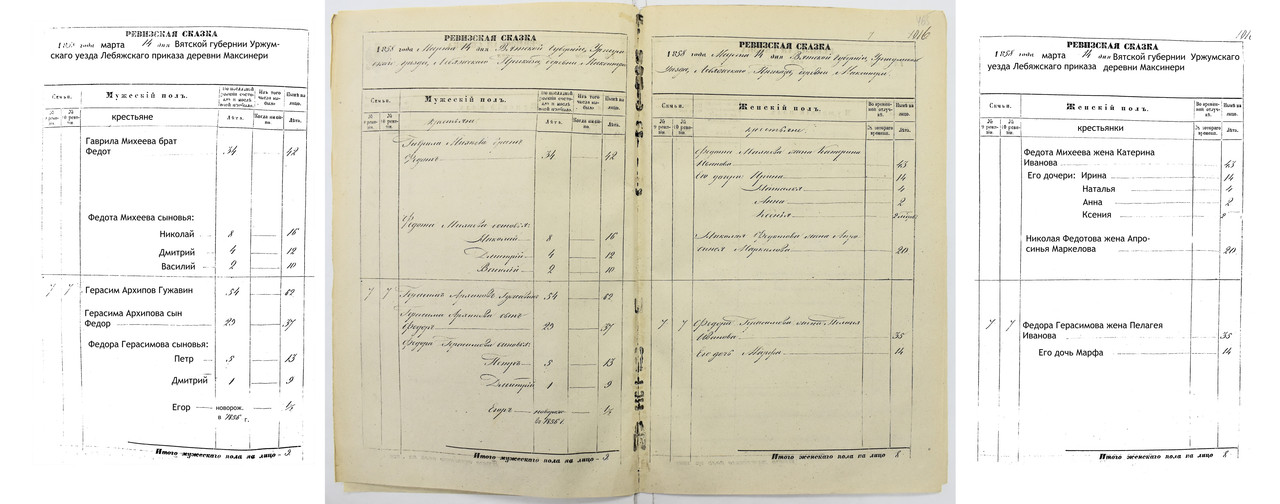 РЕВИЗСКАЯ СКАЗКА
1858 года марта 14 дня Вятской губернии Уржум-
скаго уезда Лебяжского приказа деревни Максинери
Семьи. Мужескій полъ.
крестьяне Лѣта. Лѣта.
Гаврила Михеева брат
Федот 34 42
Федота Михеева сыновья:
Николай 8 16
Дмитрий 4 12
Василий 2 10
7 7 Герасим Архипов Гужавин 54 62
Герасима Архипова сын
Федор 29 37
Федора Герасимова сыновья:
Петр 5 13
Дмитрий 1 9
Егор новорож.
в 1856 г.
Итого мужескаго пола на лицо
РЕВИЗСКАЯ СКАЗКА
1858 года Марта 14 дня Вятской губернии, Уржум
скаго уезда, Лебяжскаго Приказа, деревни Максинери
Семьи. Мужескій полъ.
крестьяне Лѣта. Лѣта.
Гаврила Михеева братъ
Федотъ 34 42
Федота Михеева сыновья:
Николай 8 16
Дмитрій 4 12
Василій 2 10
7 7 Герасимъ Архиповъ Гужавинъ 54 62
Герасима Архипова сынъ
Федоръ 29 37
Федора Герасимова сыновья:
Петръ 5 13
Дмитрій 1 9
Егоръ новорож.
въ 1856 г.
Итого мужескаго пола на лицо
1016
РЕВИЗСКАЯ СКАЗКА
1858 года Марта 14 дня Вятской губернии, Уржумскаго
Уезда, Лебяжскаго Приказа, деревни Максинери
Семьи. Женскій полъ.
крестьянки Лѣта.
Федота Михеева жена Катерина
Иванова 43
Его дочери: Ирина 14
Наталья 4
Анна 2
Ксенія
Николая Федотова жена Апро-
синья Маркелова 20
7 7 Федора Герасимова жена Пелагея
Иванова 35
Его дочь Марфа 14
Итого женскаго пола на лицо 8
РЕВИЗСКАЯ СКАЗКА
1858 года марта 14 дня Вятской губернии Уржумского
уезда Лебяжского приказа деревни Максинери
Семьи. Женскій полъ.
крестьянки Лѣта.
Федота Михеева жена Катерина
Иванова 43
Его дочери: Ирина 14
Наталья 4
Анна 2
Ксения
Николая Федотова жена Апро-
синья Маркелова 20
7 7 Федора Герасимова жена Пелагея
Иванова 35
Его дочь Марфа 14
Итого женскаго пола на лицо 8